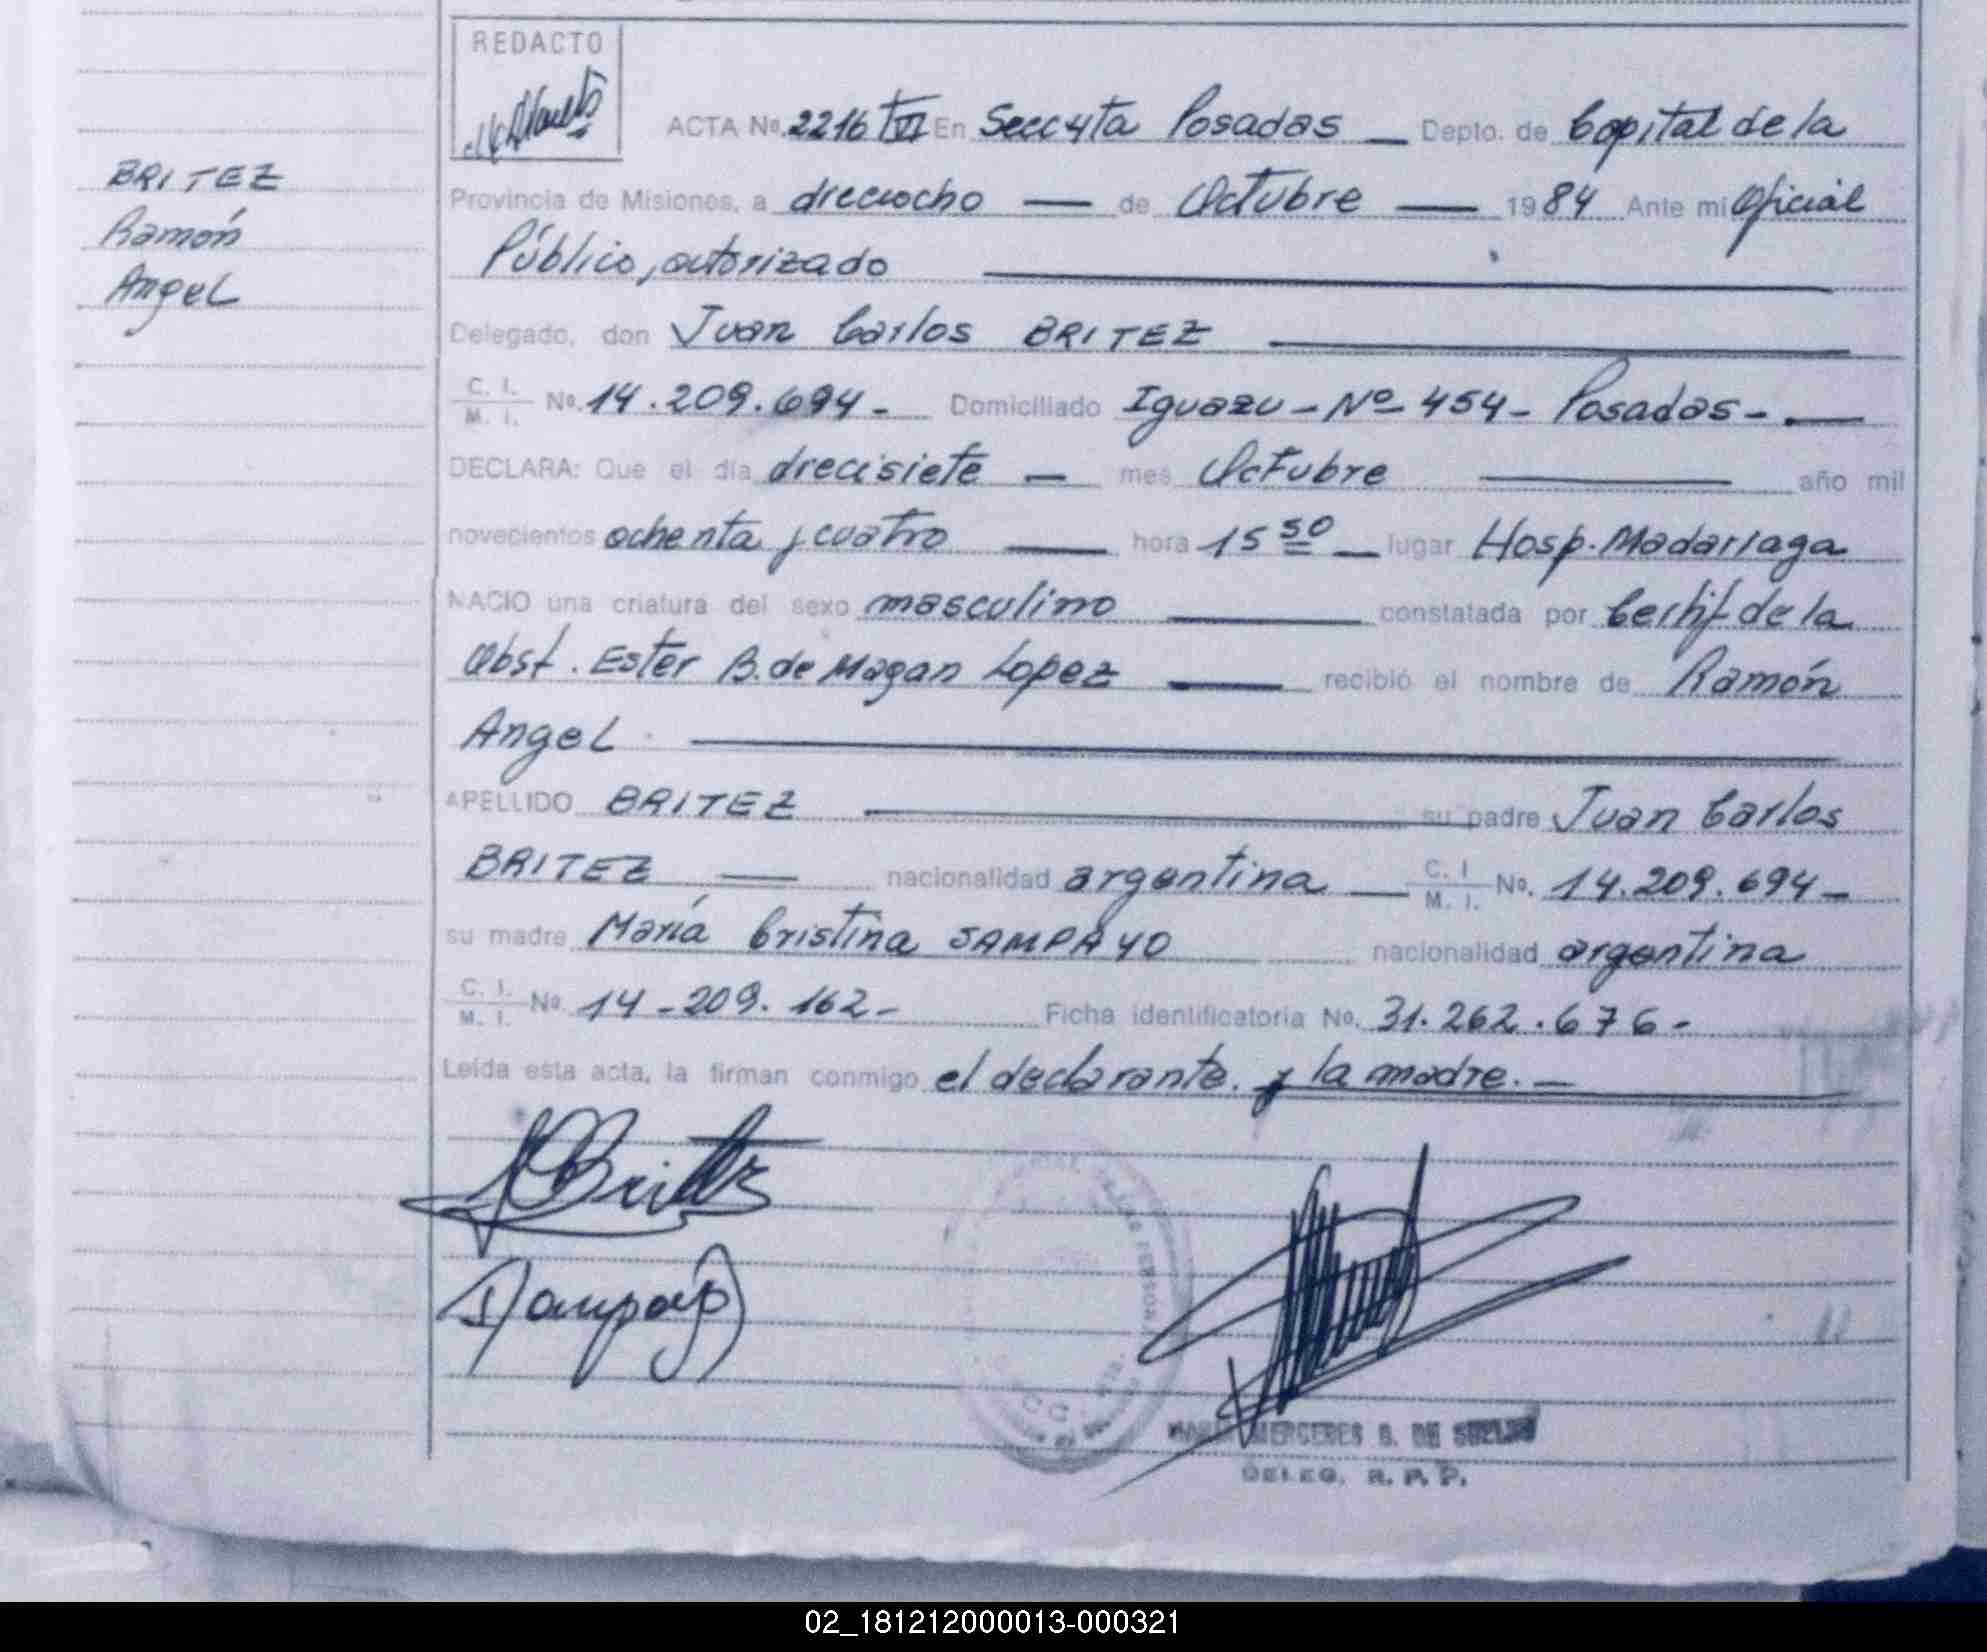 REDACTO
ACTA No. 2216 TVI En Secc 4ta Posadas — Depto. de Capital de la
BRITEZ
Ramón
Angel
Provincia de Misiones, a dieciocho — de Octubre — 1984 Ante mi Oficial
Público, autorizado
Delegado, don Juan Carlos BRITEZ
C. I. / M. I. No. 14.209.694- Domiciliado Iguazu - Nº 454 - Posadas -
DECLARA: Que el día diecisiete — mes Octubre — año mil
novecientos ochenta y cuatro — hora 15 50 — lugar Hosp. Madariaga
NACIO una criatura del sexo masculino — constatada por Certif de la
Obst. Ester B. de Magan Lopez — recibió el nombre de Ramón
Angel
APELLIDO BRITEZ — su padre Juan Carlos
BRITEZ — nacionalidad argentina — C. I / M. I. No. 14.209.694-
su madre María Cristina SAMPAYO nacionalidad argentina
C. I. / M. I. No. 14-209.162- Ficha identificatoria No. 31.262.676-
Leída esta acta, la firman conmigo el declarante. y la madre. —
Britez
Sampayo
MERCEDES B. DE
DELEG. R. P. P.
02_181212000013-000321